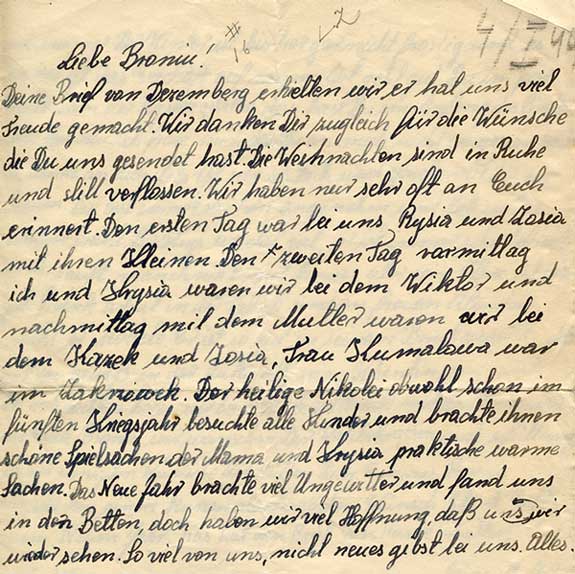 # 16
4/I 44
Liebe Broniu!
Deine Brief von Dezemberg erhielten wir er hal uns viel
Freude gemacht. Wir danken Dir zugleich für die Wünsche
die Du uns gesendet hast. Die Weihnachten sind in Ruhe
und still verflossen. Wir haben nur sehr oft an Euch
erinnert. Den ersten Tag war bei uns Rysia und Zosia
mit ihren Kleinen. Den zweiten Tag vormittag
ich und Krysia waren wir bei dem Wiktor und
nachmittag mil dem Mutter waren wir bei
dem Kazek und Zosia, Frau Kumalowa war
im Zakrzówek. Der heilige Nikolei obwohl schon im
fünften Kriegsjahr besuchte alle Kinder und brachte ihnen
schöne Spielsachen der Mama und Krysia praktische warme
Sachen. Das Neue Jahr brachte viel Ungewitter und fand uns
in den Betten, doch haben wir viel Hoffnung, daß uns wir
wieder sehen. So viel von uns, nicht neues gibst bei uns. Alles.